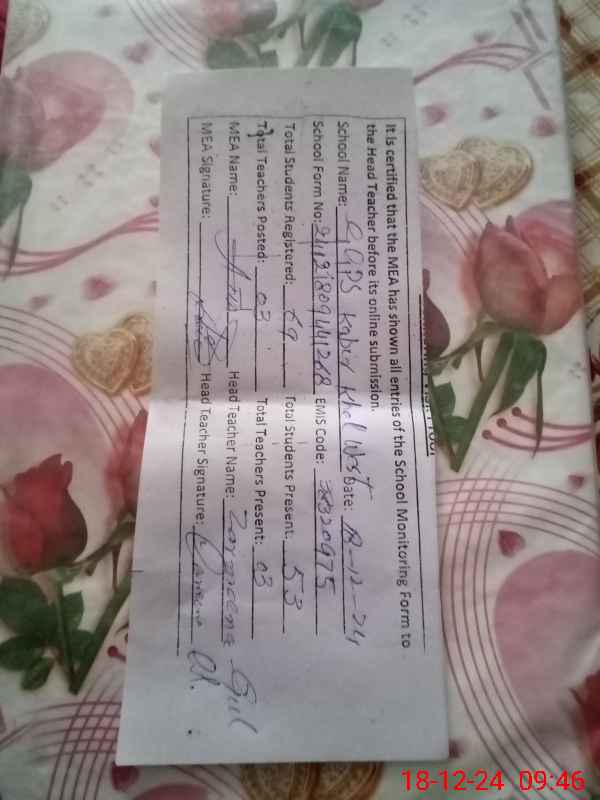 It is certified that the MEA has shown all entries of the School Monitoring Form to
the Head Teacher before its online submission.
School Name: GGPS Kabir Khel West Date: 18-12-24
School Form No: EMIS Code:
Total Students Registered: 69 Total Students Present: 53
Total Teachers Posted: 03 Total Teachers Present: 03
MEA Name: Head Teacher Name: Zarmeena Gul
MEA Signature: Head Teacher Signature:
18-12-24 09:46